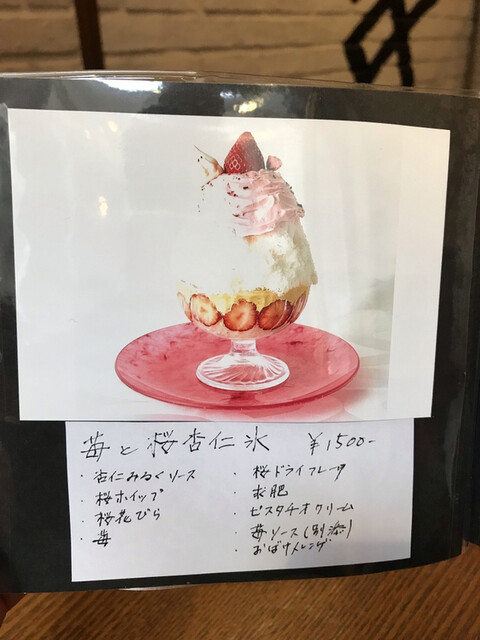 苺と桜杏仁氷 ¥1500-
・杏仁みるくソース
・桜ホイップ
・桜花びら
・苺
・桜ドライフレーク
・求肥
・ピスタチオクリーム
・苺ソース(別添)
・おばけメレンゲ